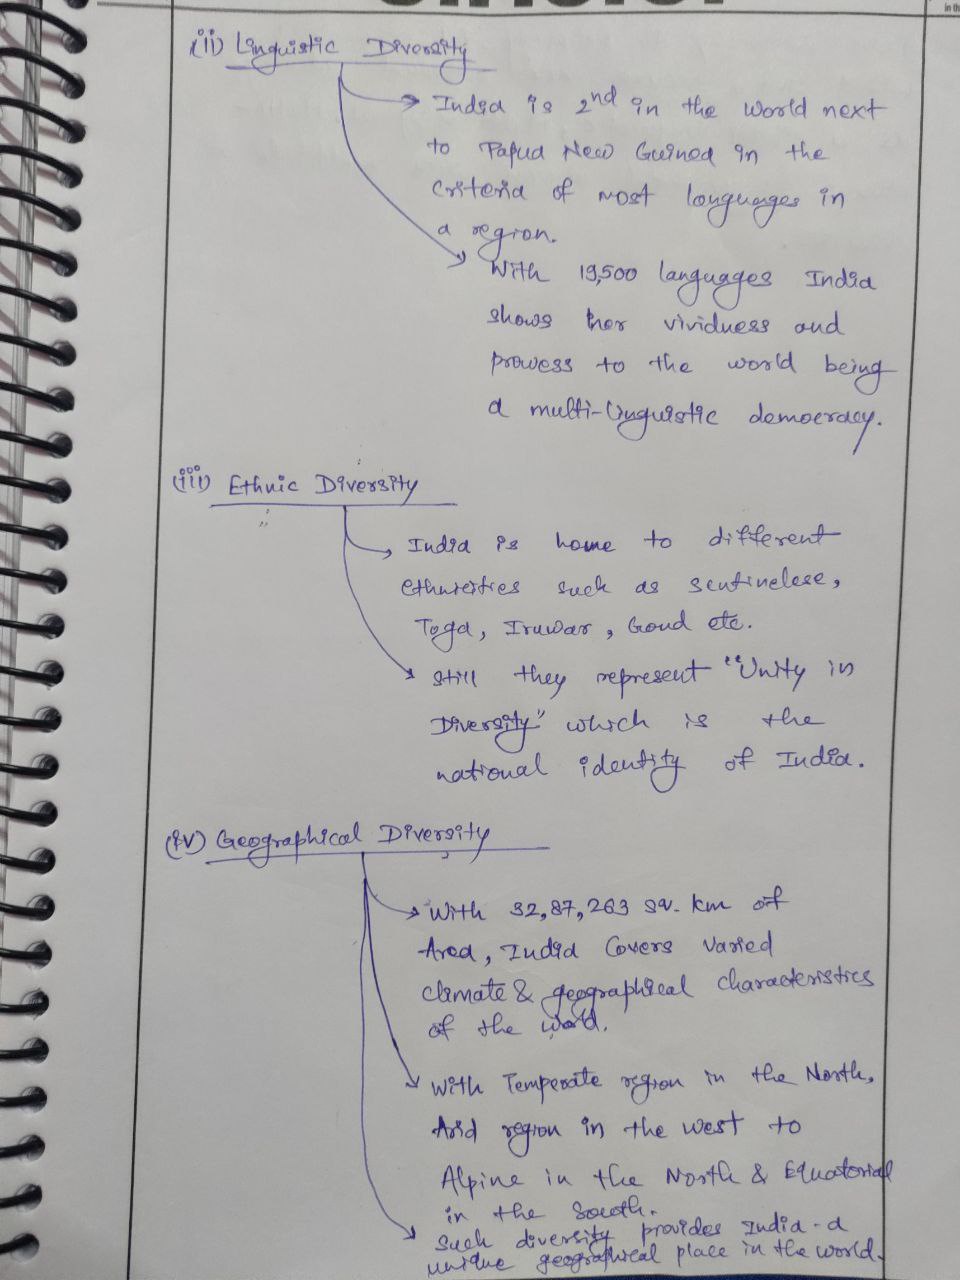 in th
(ii) Linguistic Diversity
India is 2nd in the world next
to Papua New Guinea in the
criteria of most languages in
a region.
With 19,500 languages India
shows her vividness and
prowess to the world being
a multi-linguistic democracy.
(iii) Ethnic Diversity
India is home to different
ethnicities such as sentinelese,
Toga, Iruwar, Gond etc.
still they represent "Unity in
Diversity" which is the
national identity of India.
(iv) Geographical Diversity
With 32,87,263 sq. km of
Area, India Covers varied
climate & geographical characteristics
of the world.
With Temperate region in the North,
Arid region in the west to
Alpine in the North & Equatorial
in the South.
Such diversity provides India - a
unique geographical place in the world.